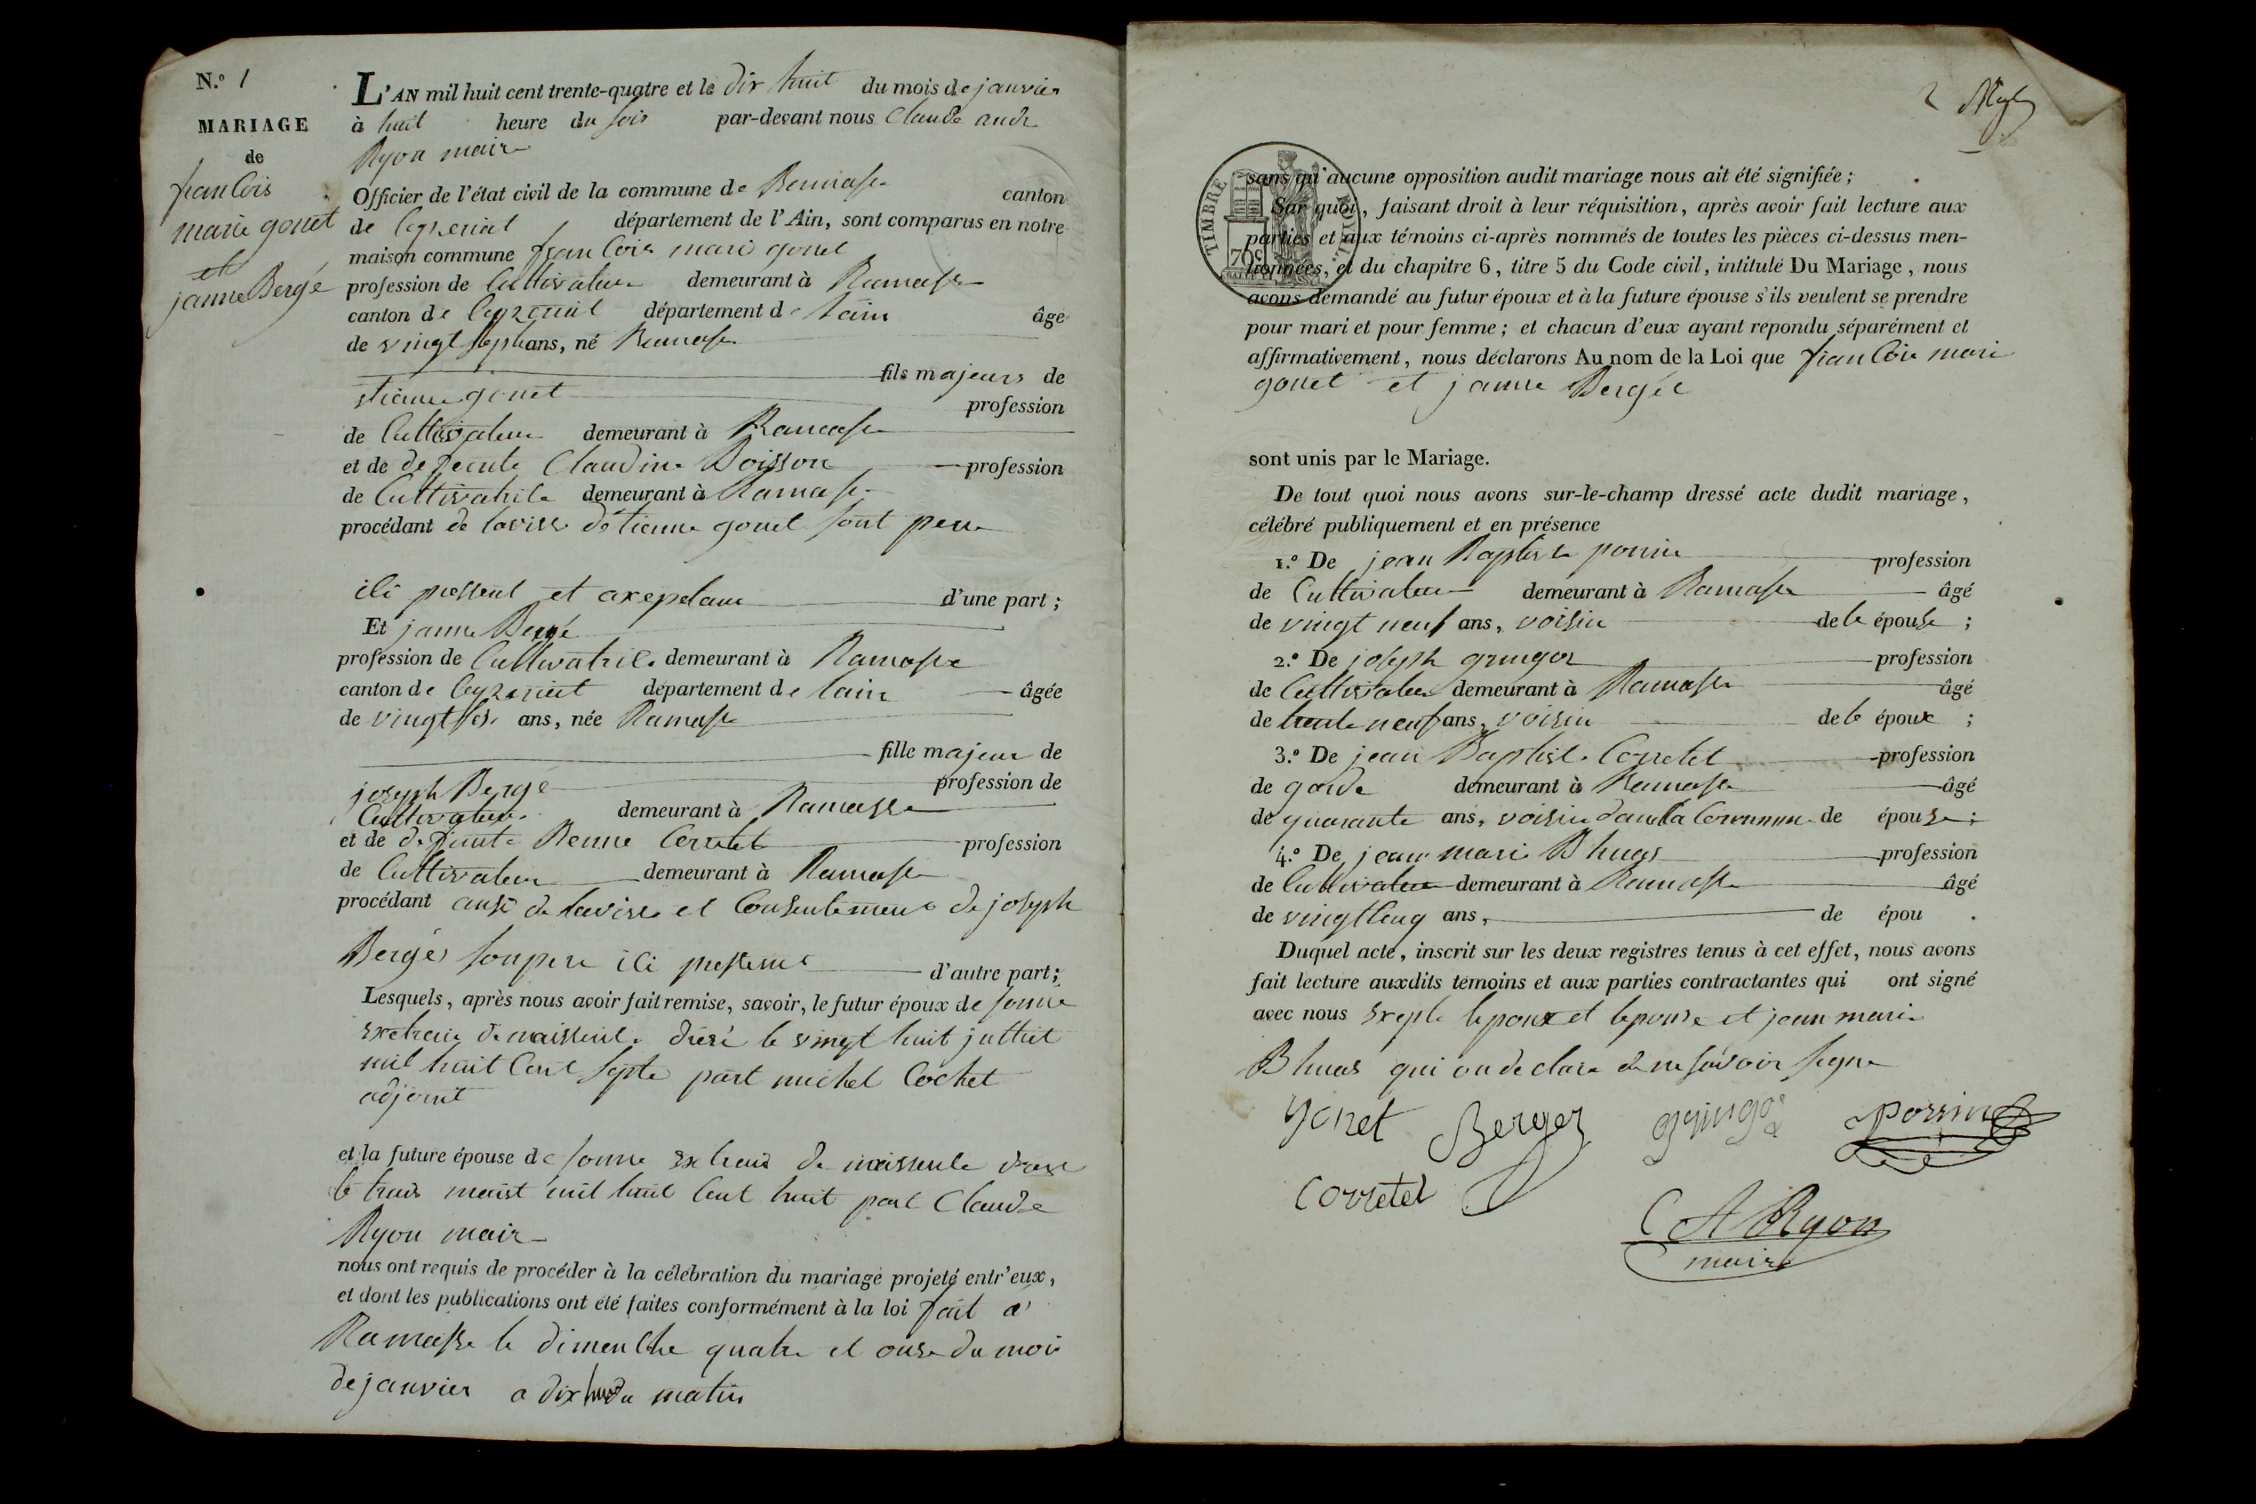 N.º 1
MARIAGE
de
franCois
marie gonet
et
janne Bergé
L'AN mil huit cent trente-quatre et le dix huit du mois de janvier
à huit heure du soir par-devant nous Claude andr
Ryon maire
Officier de l'état civil de la commune de Ramasse canton
de Ceyzeriat département de l'Ain, sont comparus en notre
maison commune franCois mari gonet
profession de Cultivateur demeurant à Ramasse
canton de Ceyzeriat département de lain âgé
de vingt sept ans, né Ramasse
fils majeurs de
stienne gonet
profession
de Cultivateur demeurant à Ramasse
et de defeunte Claudine Boisson profession
de Cultivatrice demeurant à Ramasse
procédant de laviss détienne gonet sont pere
iCi pressent et axepetant d'une part ;
Et janne Bergé
profession de Cultivatrice demeurant à Ramasse
canton de Ceyzeriat département de lain âgée
de vingt six ans, née Ramasse
fille majeur de
joseph Bergé profession de
Cultivateur demeurant à Ramasse
et de defunte Renne Corretet profession
de Cultivateur demeurant à Ramasse
procédant ausi de lavise et Consentement de joseph
Bergér son pere iCi pressent d'autre part ;
Lesquels, après nous avoir fait remise, savoir, le futur époux de sonne
extrais de naissente drésé le vingt huit jullet
mil huit Cent septe part michel Cochet
adjoint
et la future épouse de sonne extrais de naissente drese
le trois maist mil huit Cent huit part Claude
Ryon maire
nous ont requis de procéder à la célébration du mariage projeté entr'eux,
et dont les publications ont été faites conformément à la loi fait a
Ramasse le dimenChe quatre et onse du mois
de janvier a dix du matin
2
TIMBRE ROYAL
70 c
sans qu'aucune opposition audit mariage nous ait été signifiée ;
Sur quoi, faisant droit à leur réquisition, après avoir fait lecture aux
parties et aux témoins ci-après nommés de toutes les pièces ci-dessus men-
tionnées, et du chapitre 6, titre 5 du Code civil, intitulé Du Mariage, nous
avons demandé au futur époux et à la future épouse s'ils veulent se prendre
pour mari et pour femme ; et chacun d'eux ayant répondu séparément et
affirmativement, nous déclarons Au nom de la Loi que franCois mari
gonet et janne Bergér
sont unis par le Mariage.
De tout quoi nous avons sur-le-champ dressé acte dudit mariage,
célébré publiquement et en présence
1.º De jean Baptiste porrin profession
de Cultivateur demeurant à Ramasse âgé
de vingt neuf ans, voisin de le épouse ;
2.º De joseph gringoz profession
de Cultivateur demeurant à Ramasse âgé
de trente neuf ans, voisin de le époux ;
3.º De jean Baptiste Corretet profession
de garde demeurant à Ramasse âgé
de quarante ans, voisin dans la Commune de épouse ;
4.º De jean marie Bhuas profession
de Cultivateur demeurant à Ramasse âgé
de vingt Cinq ans, de épou .
Duquel acte, inscrit sur les deux registres tenus à cet effet, nous avons
fait lecture auxdits témoins et aux parties contractantes qui ont signé
avec nous exepte lepoux et lepouse et jean marie
Bhuas qui on declare de ne savoir signe
gonet Berger gringoz porrin
Corretet
C A Ryon
maire